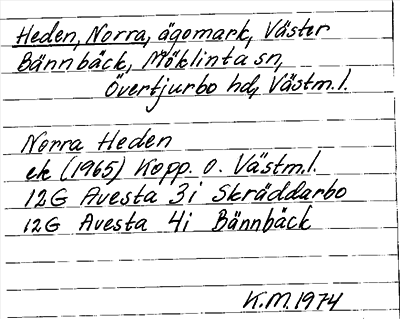 Heden, Norra, ägomark, Väster
Bännbäck, Möklinta sn,
Övertjurbo hd, Västm.l.
Norra Heden
ek (1965) Kopp. o. Västm.l.
12G Avesta 3i Skräddarbo
12G Avesta 4i Bännbäck
K.M.1974